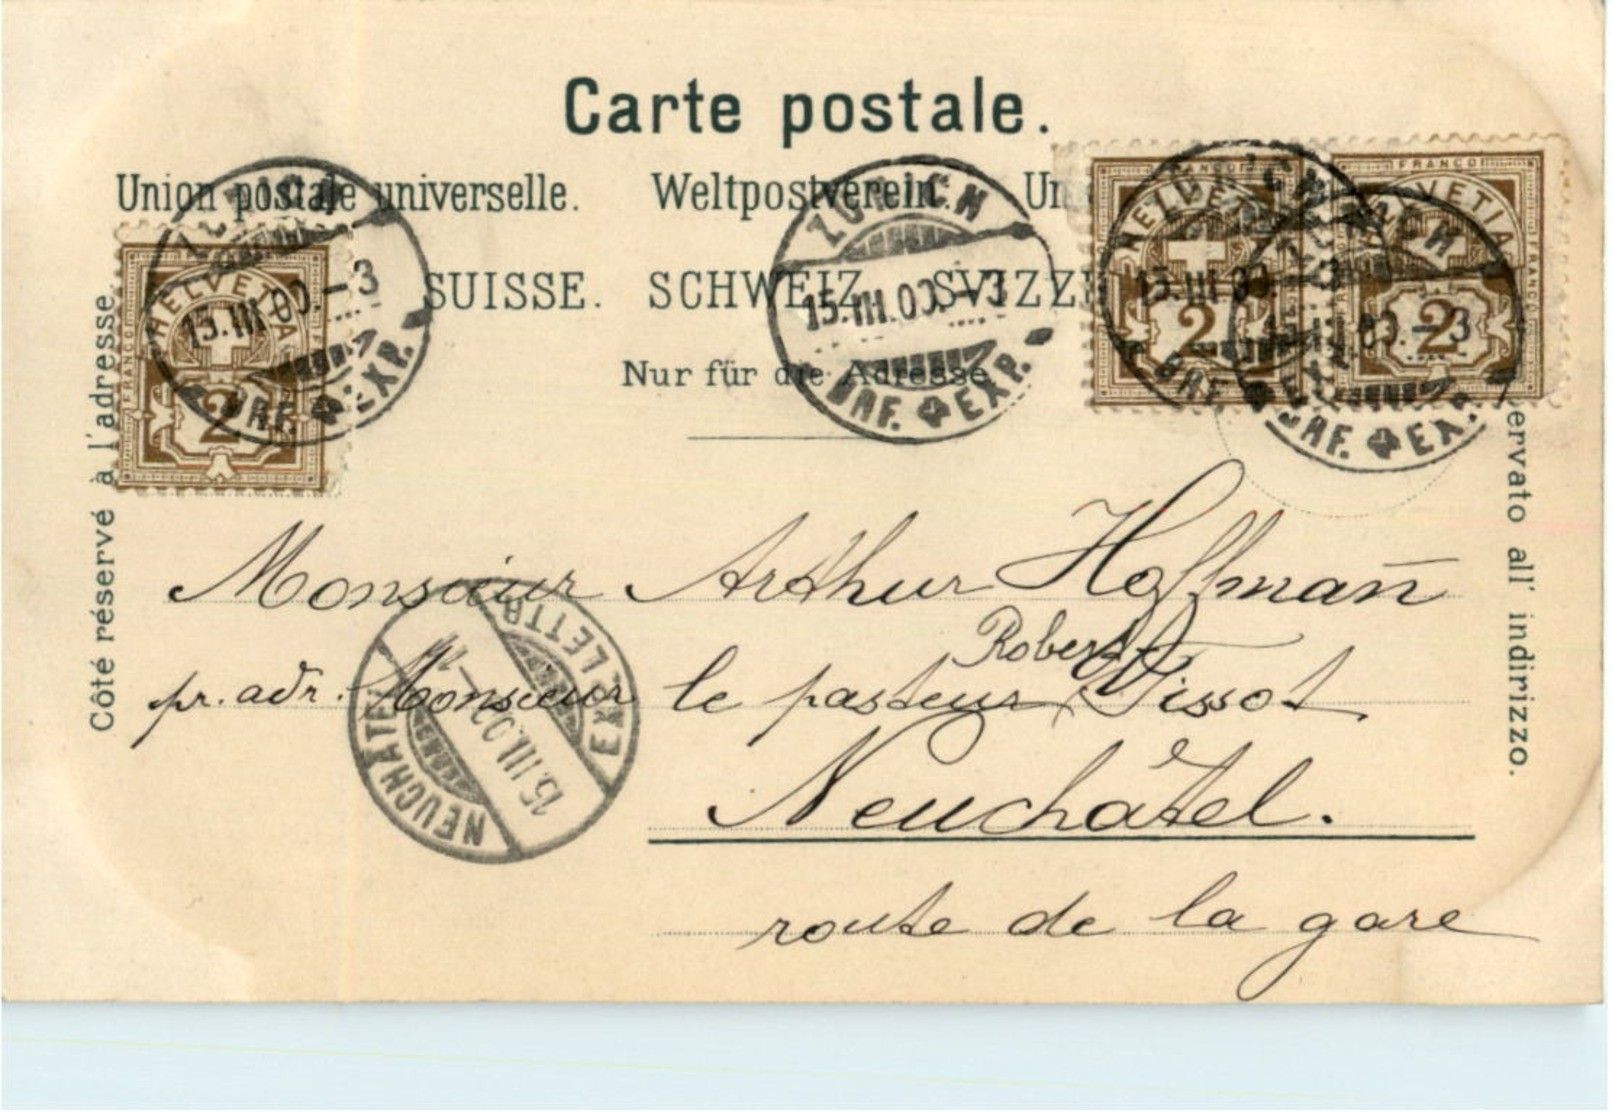 Carte postale.
Union postale universelle. Weltpostverein. Un
SUISSE. SCHWEIZ. SVIZZE
Nur für die Adresse
Côté réservé à l'adresse.
ervato all' indirizzo.
FRANCO HELVETIA 2
FRANCO HELVETIA 2
FRANCO HELVETIA 2 FRANCO
ZÜRICH 15.III.00.-3 BRF. EXP.
ZÜRICH 15.III.00.-3 BRF. EXP.
ZÜRICH 15.III.00.-3 BRF. EXP.
ZÜRICH 15.III.00.-3 BRF. EXP.
Monsieur Arthur Hoffmañ
Robert
pr. adr. Monsieur le pasteur Tissot
Neuchâtel.
route de la gare
NEUCHÂTEL 15.III.00 EXP. LETTR.